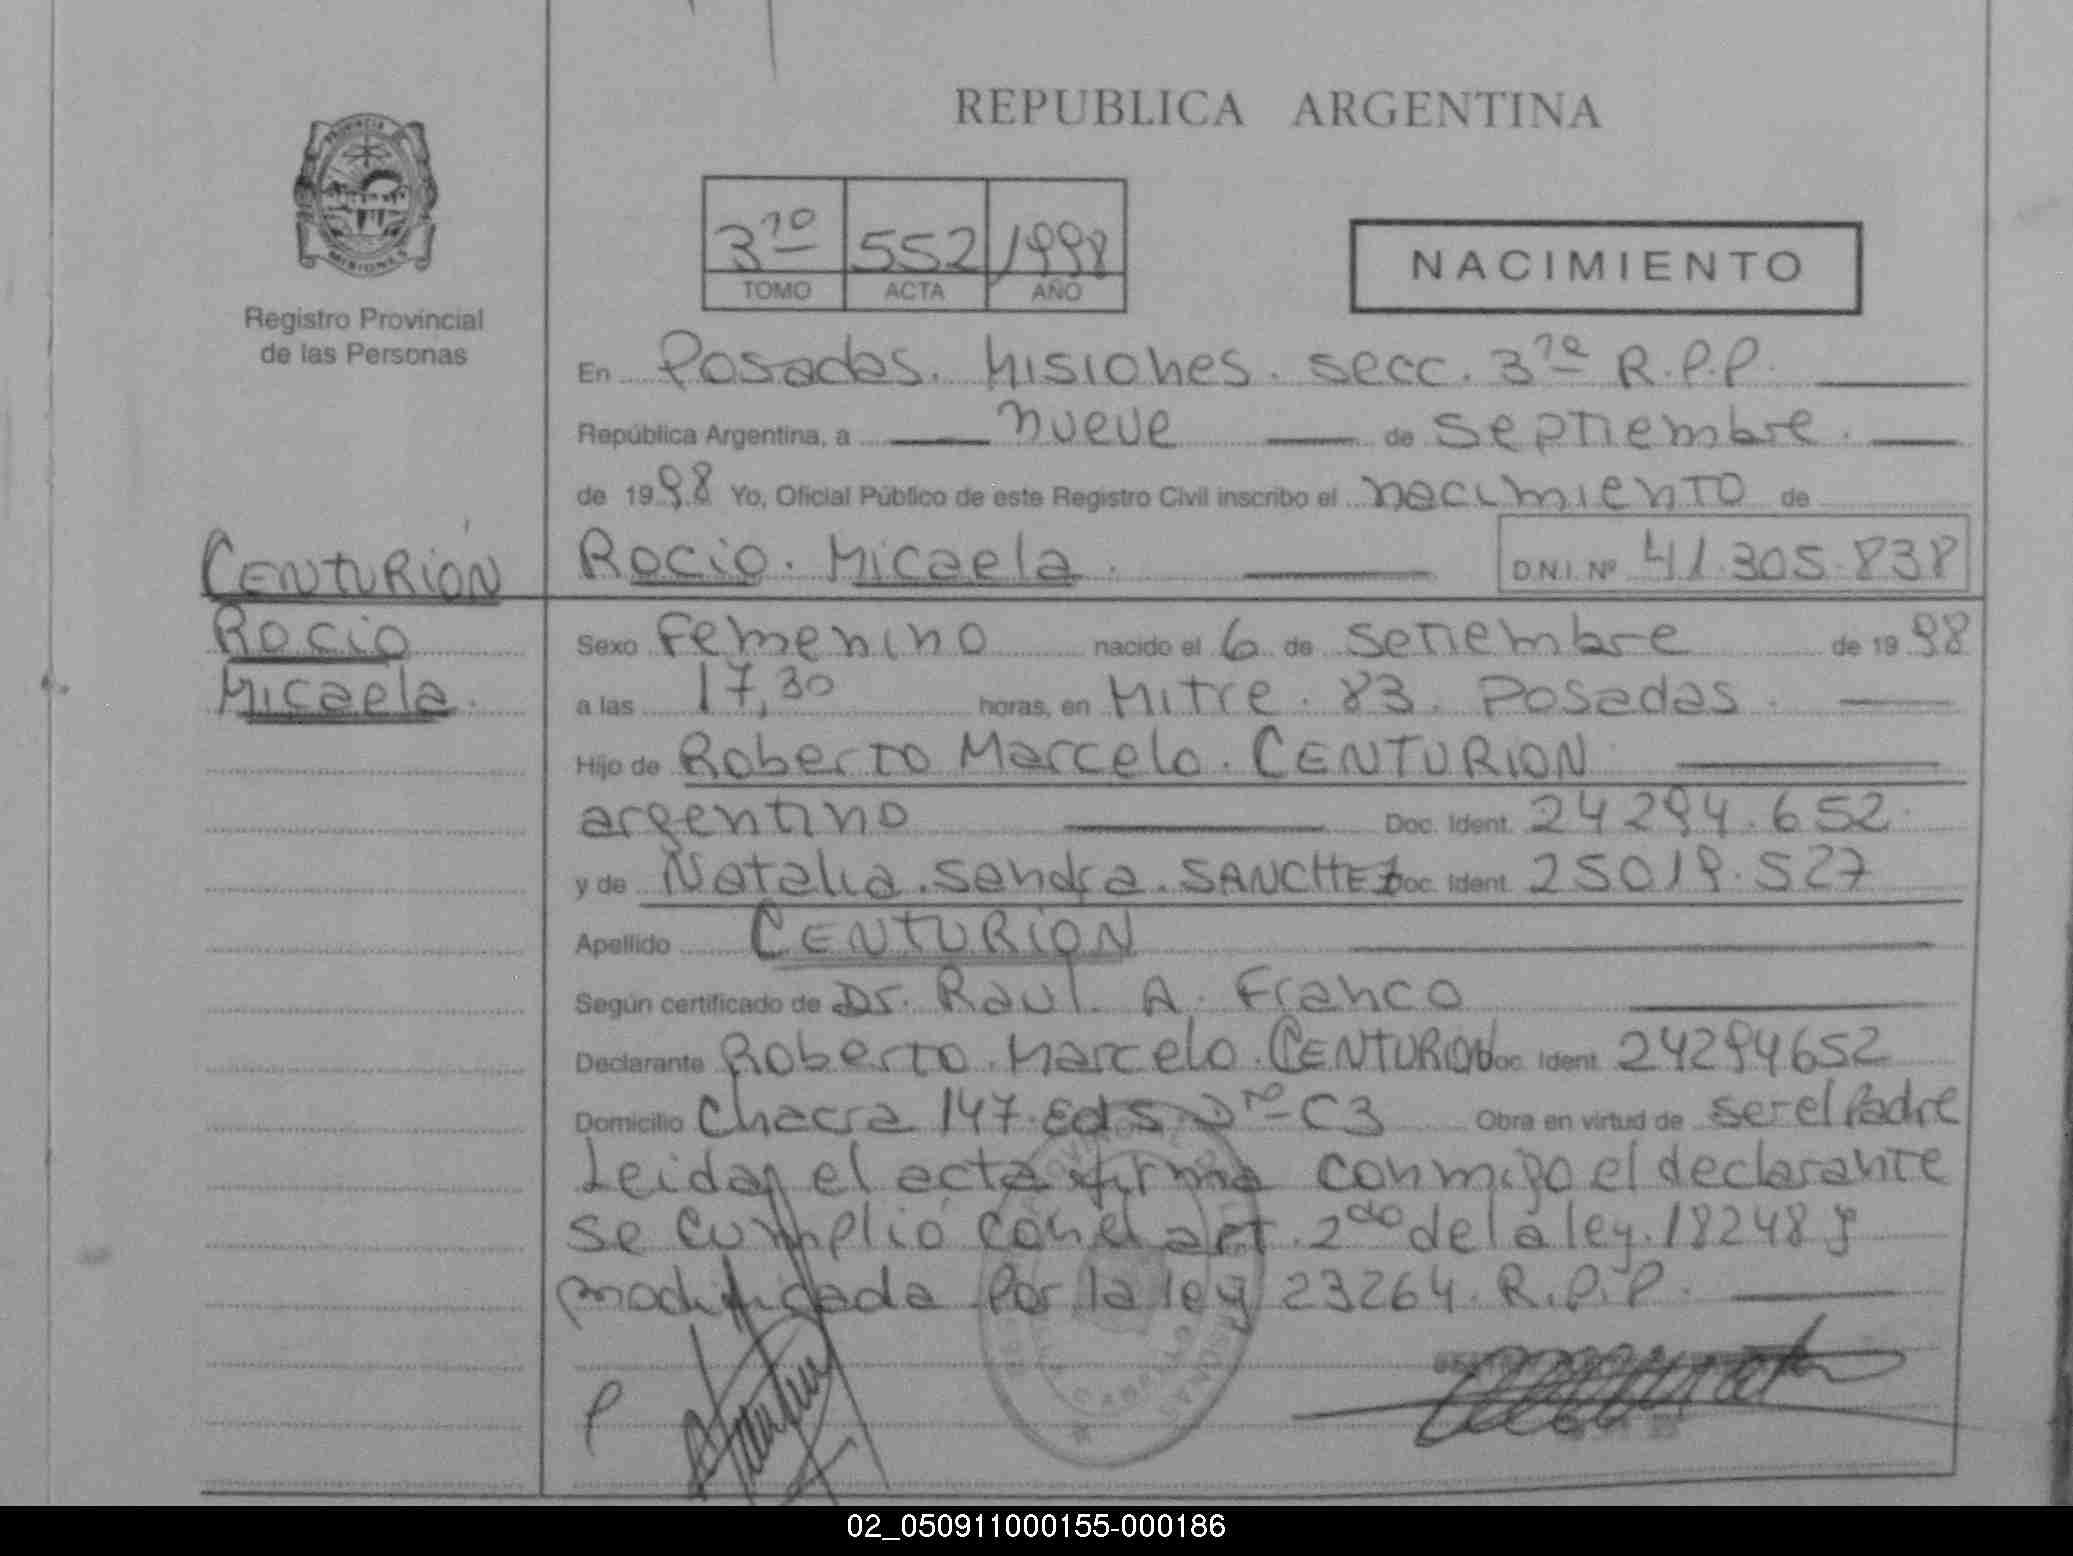 REPUBLICA ARGENTINA
PROVINCIA
MISIONES
Registro Provincial
de las Personas
3ro 552 1998
TOMO ACTA AÑO
NACIMIENTO
En Posadas. Misiones. secc. 3ra R.P.P.
República Argentina, a nueve de septiembre.
de 1998 Yo, Oficial Público de este Registro Civil inscribo el nacimiento de
CENTURIÓN
Rocio
Micaela.
Rocio. Micaela. D.N.I. Nº 41.305.838
Sexo Femenino nacido el 6 de setiembre de 1998
a las 17,30 horas, en Mitre. 83. Posadas.
Hijo de Roberto Marcelo. CENTURION
argentino Doc. Ident. 24294.652.
y de Natalia. Sandra. SANCHEZ Doc. Ident. 25019.527
Apellido CENTURION
Según certificado de Dr. Raul. A. Franco
Declarante Roberto. Marcelo. CENTURION Doc. Ident. 24294652
Domicilio Chacra 147. Ed 5 C3 Obra en virtud de ser el Padre
Leida el acta firma conmigo el declarante
se cumplió con el art. 2do de la ley. 18248 y
modificada por la ley 23264. R.P.P.
02_050911000155-000186